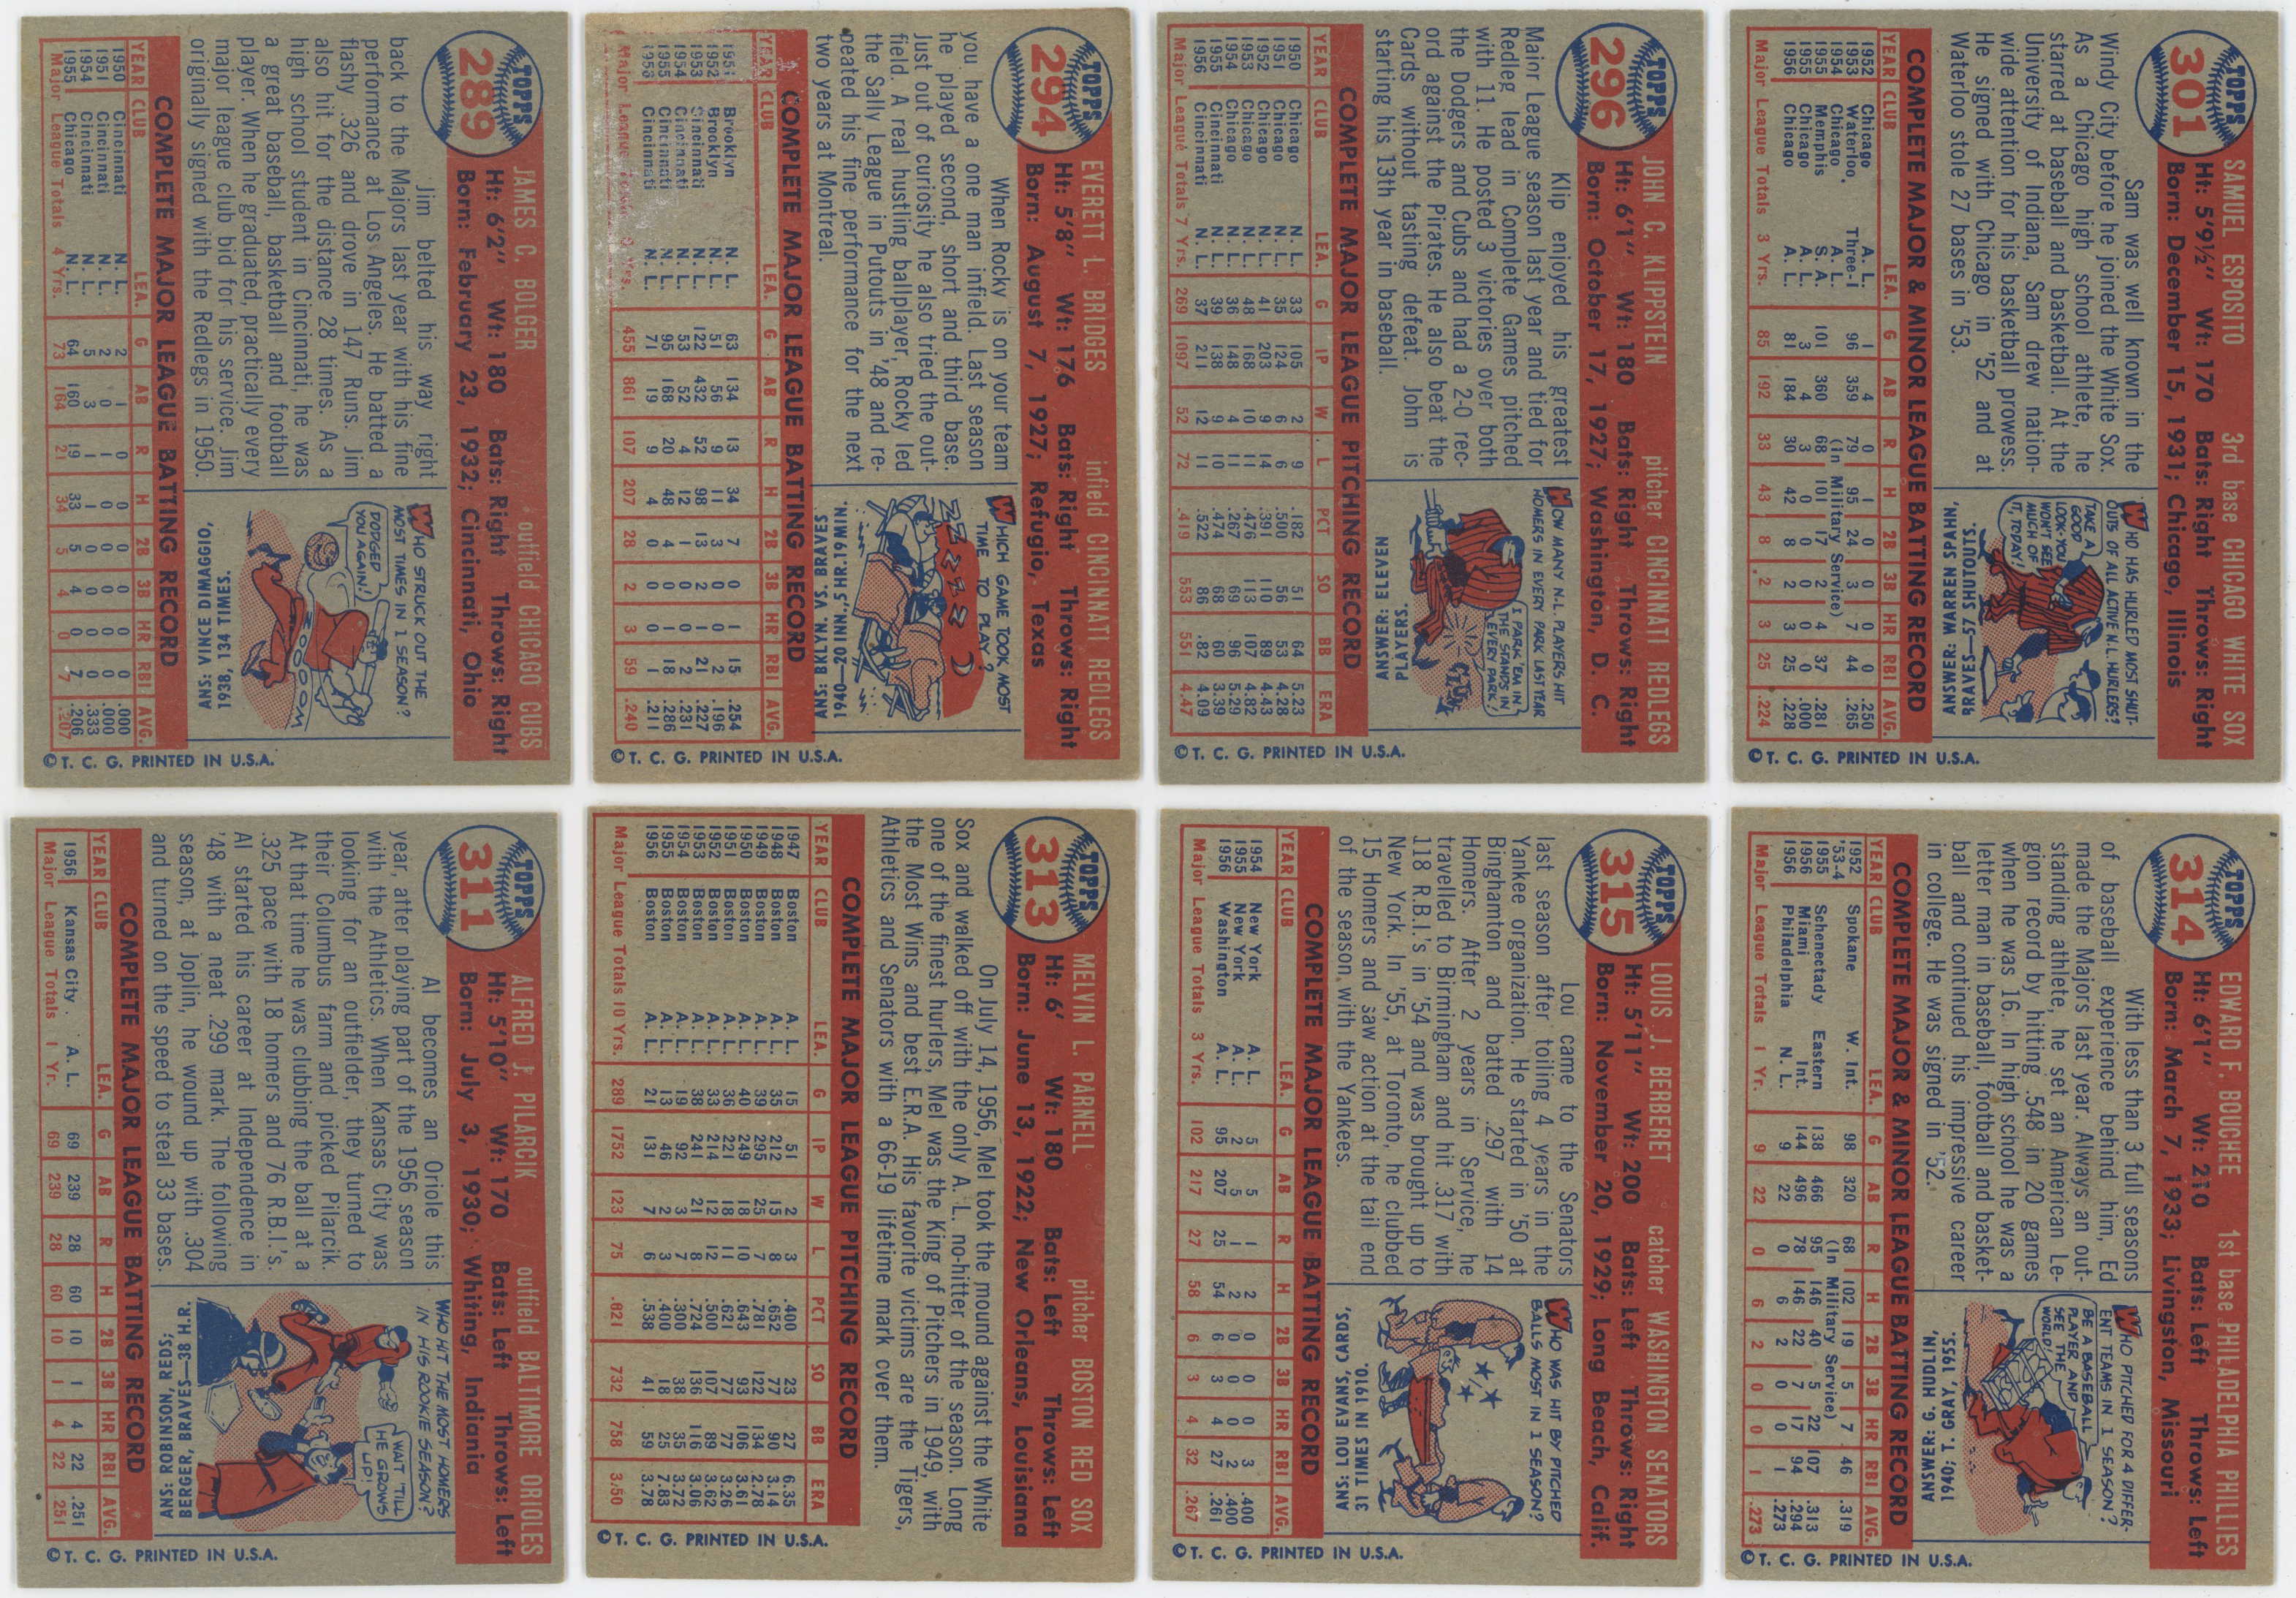 TOPPS
289
JAMES C. BOLGER outfield CHICAGO CUBS
Ht: 6'2" Wt: 180 Bats: Right Throws: Right
Born: February 23, 1932; Cincinnati, Ohio
Jim belted his way right
back to the Majors last year with his fine
performance at Los Angeles. He batted a
flashy .326 and drove in 147 Runs. Jim
also hit for the distance 28 times. As a
high school student in Cincinnati, he was
a great baseball, basketball and football
player. When he graduated, practically every
major league club bid for his service. Jim
originally signed with the Redlegs in 1950.
WHO STRUCK OUT THE
MOST TIMES IN 1 SEASON?
DODGED
YOU AGAIN!
ZOOOOM
ANS: VINCE DIMAGGIO,
1938, 134 TIMES.
COMPLETE MAJOR LEAGUE BATTING RECORD
YEAR CLUB LEA. G AB R H 2B 3B HR RBI AVG.
1950 Cincinnati N. L. 2 1 0 0 0 0 0 0 .000
1951 Cincinnati N. L. 2 0 1 0 0 0 0 0 .000
1954 Cincinnati N. L. 5 3 1 1 0 0 0 0 .333
1955 Chicago N. L. 64 160 19 33 5 4 0 7 .206
Major League Totals 4 Yrs. 73 164 21 34 5 4 0 7 .207
© T. C. G. PRINTED IN U.S.A.
TOPPS
294
EVERETT L. BRIDGES infield CINCINNATI REDLEGS
Ht: 5'8" Wt: 176 Bats: Right Throws: Right
Born: August 7, 1927; Refugio, Texas
When Rocky is on your team
you have a one man infield. Last season
he played second, short and third base.
Just out of curiosity he also tried the out-
field. A real hustling ballplayer, Rocky led
the Sally League in Putouts in '48 and re-
peated his fine performance for the next
two years at Montreal.
WHICH GAME TOOK MOST
TIME TO PLAY?
ZZZZZ
ANS: BKLYN. VS. BRAVES
1940—20 INN., 5 HR. 19 MIN.
COMPLETE MAJOR LEAGUE BATTING RECORD
YEAR CLUB LEA. G AB R H 2B 3B HR RBI AVG.
1951 Brooklyn N. L. 63 134 13 34 7 0 1 15 .254
1952 Brooklyn N. L. 51 56 9 11 3 0 0 2 .196
1953 Cincinnati N. L. 122 432 52 98 13 2 1 21 .227
1954 Cincinnati N. L. 53 52 4 12 1 0 0 2 .231
1955 Cincinnati N. L. 95 168 20 48 4 0 1 18 .286
Cincinnati N. L. 71 19 9 4 0 0 0 1 .211
Major League Yrs. 455 861 107 207 28 2 3 59 .240
© T. C. G. PRINTED IN U.S.A.
TOPPS
296
JOHN C. KLIPPSTEIN pitcher CINCINNATI REDLEGS
Ht: 6'1" Wt: 180 Bats: Right Throws: Right
Born: October 17, 1927; Washington, D. C.
Klip enjoyed his greatest
Major League season last year and tied for
Redleg lead in Complete Games pitched
with 11. He posted 3 victories over both
the Dodgers and Cubs and had a 2-0 rec-
ord against the Pirates. He also beat the
Cards without tasting defeat. John is
starting his 13th year in baseball.
HOW MANY N.L. PLAYERS HIT
HOMERS IN EVERY PARK LAST YEAR
I PARK 'EM IN
THE STANDS IN
EVERY PARK!
CLUNK
ANSWER: ELEVEN
PLAYERS.
COMPLETE MAJOR LEAGUE PITCHING RECORD
YEAR CLUB LEA. G IP W L PCT SO BB ERA
1950 Chicago N. L. 33 105 2 9 .182 51 64 5.23
1951 Chicago N. L. 35 124 6 6 .500 56 53 4.28
1952 Chicago N. L. 41 203 9 14 .391 110 89 4.43
1953 Chicago N. L. 48 168 10 11 .476 113 107 4.82
1954 Chicago N. L. 36 148 4 11 .267 69 96 5.29
1955 Cincinnati N. L. 39 138 9 10 .474 68 60 3.39
1956 Cincinnati N. L. 37 211 12 11 .522 86 82 4.09
Major League Totals 7 Yrs. 269 1097 52 72 .419 553 551 4.47
© T. C. G. PRINTED IN U.S.A.
TOPPS
301
SAMUEL ESPOSITO 3rd base CHICAGO WHITE SOX
Ht: 5'9½" Wt: 170 Bats: Right Throws: Right
Born: December 15, 1931; Chicago, Illinois
Sam was well known in the
Windy City before he joined the White Sox.
As a Chicago high school athlete, he
starred at baseball and basketball. At the
University of Indiana, Sam drew nation-
wide attention for his basketball prowess.
He signed with Chicago in '52 and at
Waterloo stole 27 bases in '53.
WHO HAS HURLED MOST SHUT-
OUTS OF ALL ACTIVE N.L. HURLERS?
TAKE A
GOOD
LOOK-YOU
WON'T SEE
MUCH OF
IT, TODAY!
ANSWER: WARREN SPAHN,
BRAVES—57 SHUTOUTS.
COMPLETE MAJOR & MINOR LEAGUE BATTING RECORD
YEAR CLUB LEA. G AB R H 2B 3B HR RBI AVG.
1952 Chicago A. L. 1 4 0 1 0 0 0 0 .250
1953 Waterloo, Three-I 96 359 79 95 24 3 7 44 .265
1954 Chicago A. L. (In Military Service)
1955 Memphis S. A. 101 360 68 101 17 2 4 37 .281
1955 Chicago A. L. 3 4 3 0 0 0 0 0 .000
1956 Chicago A. L. 81 184 30 42 8 2 3 25 .228
Major League Totals 3 Yrs. 85 192 33 43 8 2 3 25 .224
© T. C. G. PRINTED IN U.S.A.
TOPPS
311
ALFRED J. PILARCIK outfield BALTIMORE ORIOLES
Ht: 5'10" Wt: 170 Bats: Left Throws: Left
Born: July 3, 1930; Whiting, Indiania
Al becomes an Oriole this
year, after playing part of the 1956 season
with the Athletics. When Kansas City was
looking for an outfielder, they turned to
their Columbus farm and picked Pilarcik.
At that time he was clubbing the ball at a
.325 pace with 18 homers and 76 R.B.I.'s.
Al started his career at Independence in
'48 with a neat .299 mark. The following
season, at Joplin, he wound up with .304
and turned on the speed to steal 33 bases.
WHO HIT THE MOST HOMERS
IN HIS ROOKIE SEASON?
WAIT 'TILL
HE GROWS
UP!
ANS: ROBINSON, REDS;
BERGER, BRAVES—38 H.R.
COMPLETE MAJOR LEAGUE BATTING RECORD
YEAR CLUB LEA. G AB R H 2B 3B HR RBI AVG.
1956 Kansas City A. L. 69 239 28 60 10 1 4 22 .251
Major League Totals 1 Yr. 69 239 28 60 10 1 4 22 .251
© T. C. G. PRINTED IN U.S.A.
TOPPS
313
MELVIN L. PARNELL pitcher BOSTON RED SOX
Ht: 6' Wt: 180 Bats: Left Throws: Left
Born: June 13, 1922; New Orleans, Louisiana
On July 14, 1956, Mel took the mound against the White
Sox and walked off with the only A. L. no-hitter of the season. Long
one of the finest hurlers, Mel was the King of Pitchers in 1949, with
the Most Wins and best E.R.A. His favorite victims are the Tigers,
Athletics and Senators with a 66-19 lifetime mark over them.
COMPLETE MAJOR LEAGUE PITCHING RECORD
YEAR CLUB LEA. G IP W L PCT SO BB ERA
1947 Boston A. L. 15 51 2 3 .400 23 27 6.35
1948 Boston A. L. 35 212 15 8 .652 77 90 3.14
1949 Boston A. L. 39 295 25 7 .781 122 134 2.78
1950 Boston A. L. 40 249 18 10 .643 93 106 3.61
1951 Boston A. L. 36 221 18 11 .621 77 77 3.26
1952 Boston A. L. 33 214 12 12 .500 107 89 3.62
1953 Boston A. L. 38 241 21 8 .724 136 116 3.06
1954 Boston A. L. 19 92 3 7 .300 38 35 3.72
1955 Boston A. L. 13 46 2 3 .400 18 25 7.83
1956 Boston A. L. 21 131 7 6 .538 41 59 3.78
Major League Totals 10 Yrs. 289 1752 123 75 .621 732 758 3.50
© T. C. G. PRINTED IN U.S.A.
TOPPS
315
LOUIS J. BERBERET catcher WASHINGTON SENATORS
Ht: 5'11" Wt: 200 Bats: Left Throws: Right
Born: November 20, 1929; Long Beach, Calif.
Lou came to the Senators
last season after toiling 4 years in the
Yankee organization. He started in '50 at
Binghamton and batted .297 with 14
Homers. After 2 years in Service, he
travelled to Birmingham and hit .317 with
118 R.B.I.'s in '54 and was brought up to
New York. In '55, at Toronto, he clubbed
15 Homers and saw action at the tail end
of the season with the Yankees.
WHO WAS HIT BY PITCHED
BALLS MOST IN 1 SEASON?
ANS: LOU EVANS, CARDS,
31 TIMES IN 1910.
COMPLETE MAJOR LEAGUE BATTING RECORD
YEAR CLUB LEA. G AB R H 2B 3B HR RBI AVG.
1954 New York A. L. 5 5 1 2 0 0 0 3 .400
1955 New York A. L. 2 5 1 2 0 0 0 2 .400
1956 Washington A. L. 95 207 25 54 6 3 4 27 .261
Major League Totals 3 Yrs. 102 217 27 58 6 3 4 32 .267
© T. C. G. PRINTED IN U.S.A.
TOPPS
314
EDWARD F. BOUCHEE 1st base PHILADELPHIA PHILLIES
Ht: 6'1" Wt: 210 Bats: Left Throws: Left
Born: March 7, 1933; Livingston, Missouri
With less than 3 full seasons
of baseball experience behind him, Ed
made the Majors last year. Always an out-
standing athlete, he set an American Le-
gion record by hitting .548 in 20 games
when he was 16. In high school he was a
letter man in baseball, football and basket-
ball and continued his impressive career
in college. He was signed in '52.
WHO PITCHED FOR 4 DIFFER-
ENT TEAMS IN 1 SEASON?
BE A BASEBALL
PLAYER AND
SEE THE
WORLD!
ANSWER: G. HUDLIN,
1940; T. GRAY, 1955.
COMPLETE MAJOR & MINOR LEAGUE BATTING RECORD
YEAR CLUB LEA. G AB R H 2B 3B HR RBI AVG.
1952 Spokane W. Int. 98 320 68 102 19 5 7 46 .319
'53-4 (In Military Service)
1955 Schenectady Eastern 138 466 95 146 40 5 22 107 .313
1956 Miami Int. 144 496 78 146 22 7 17 94 .294
1956 Philadelphia N. L. 9 22 0 6 2 0 0 1 .273
Major League Totals 1 Yr. 9 22 0 6 2 0 0 1 .273
© T. C. G. PRINTED IN U.S.A.